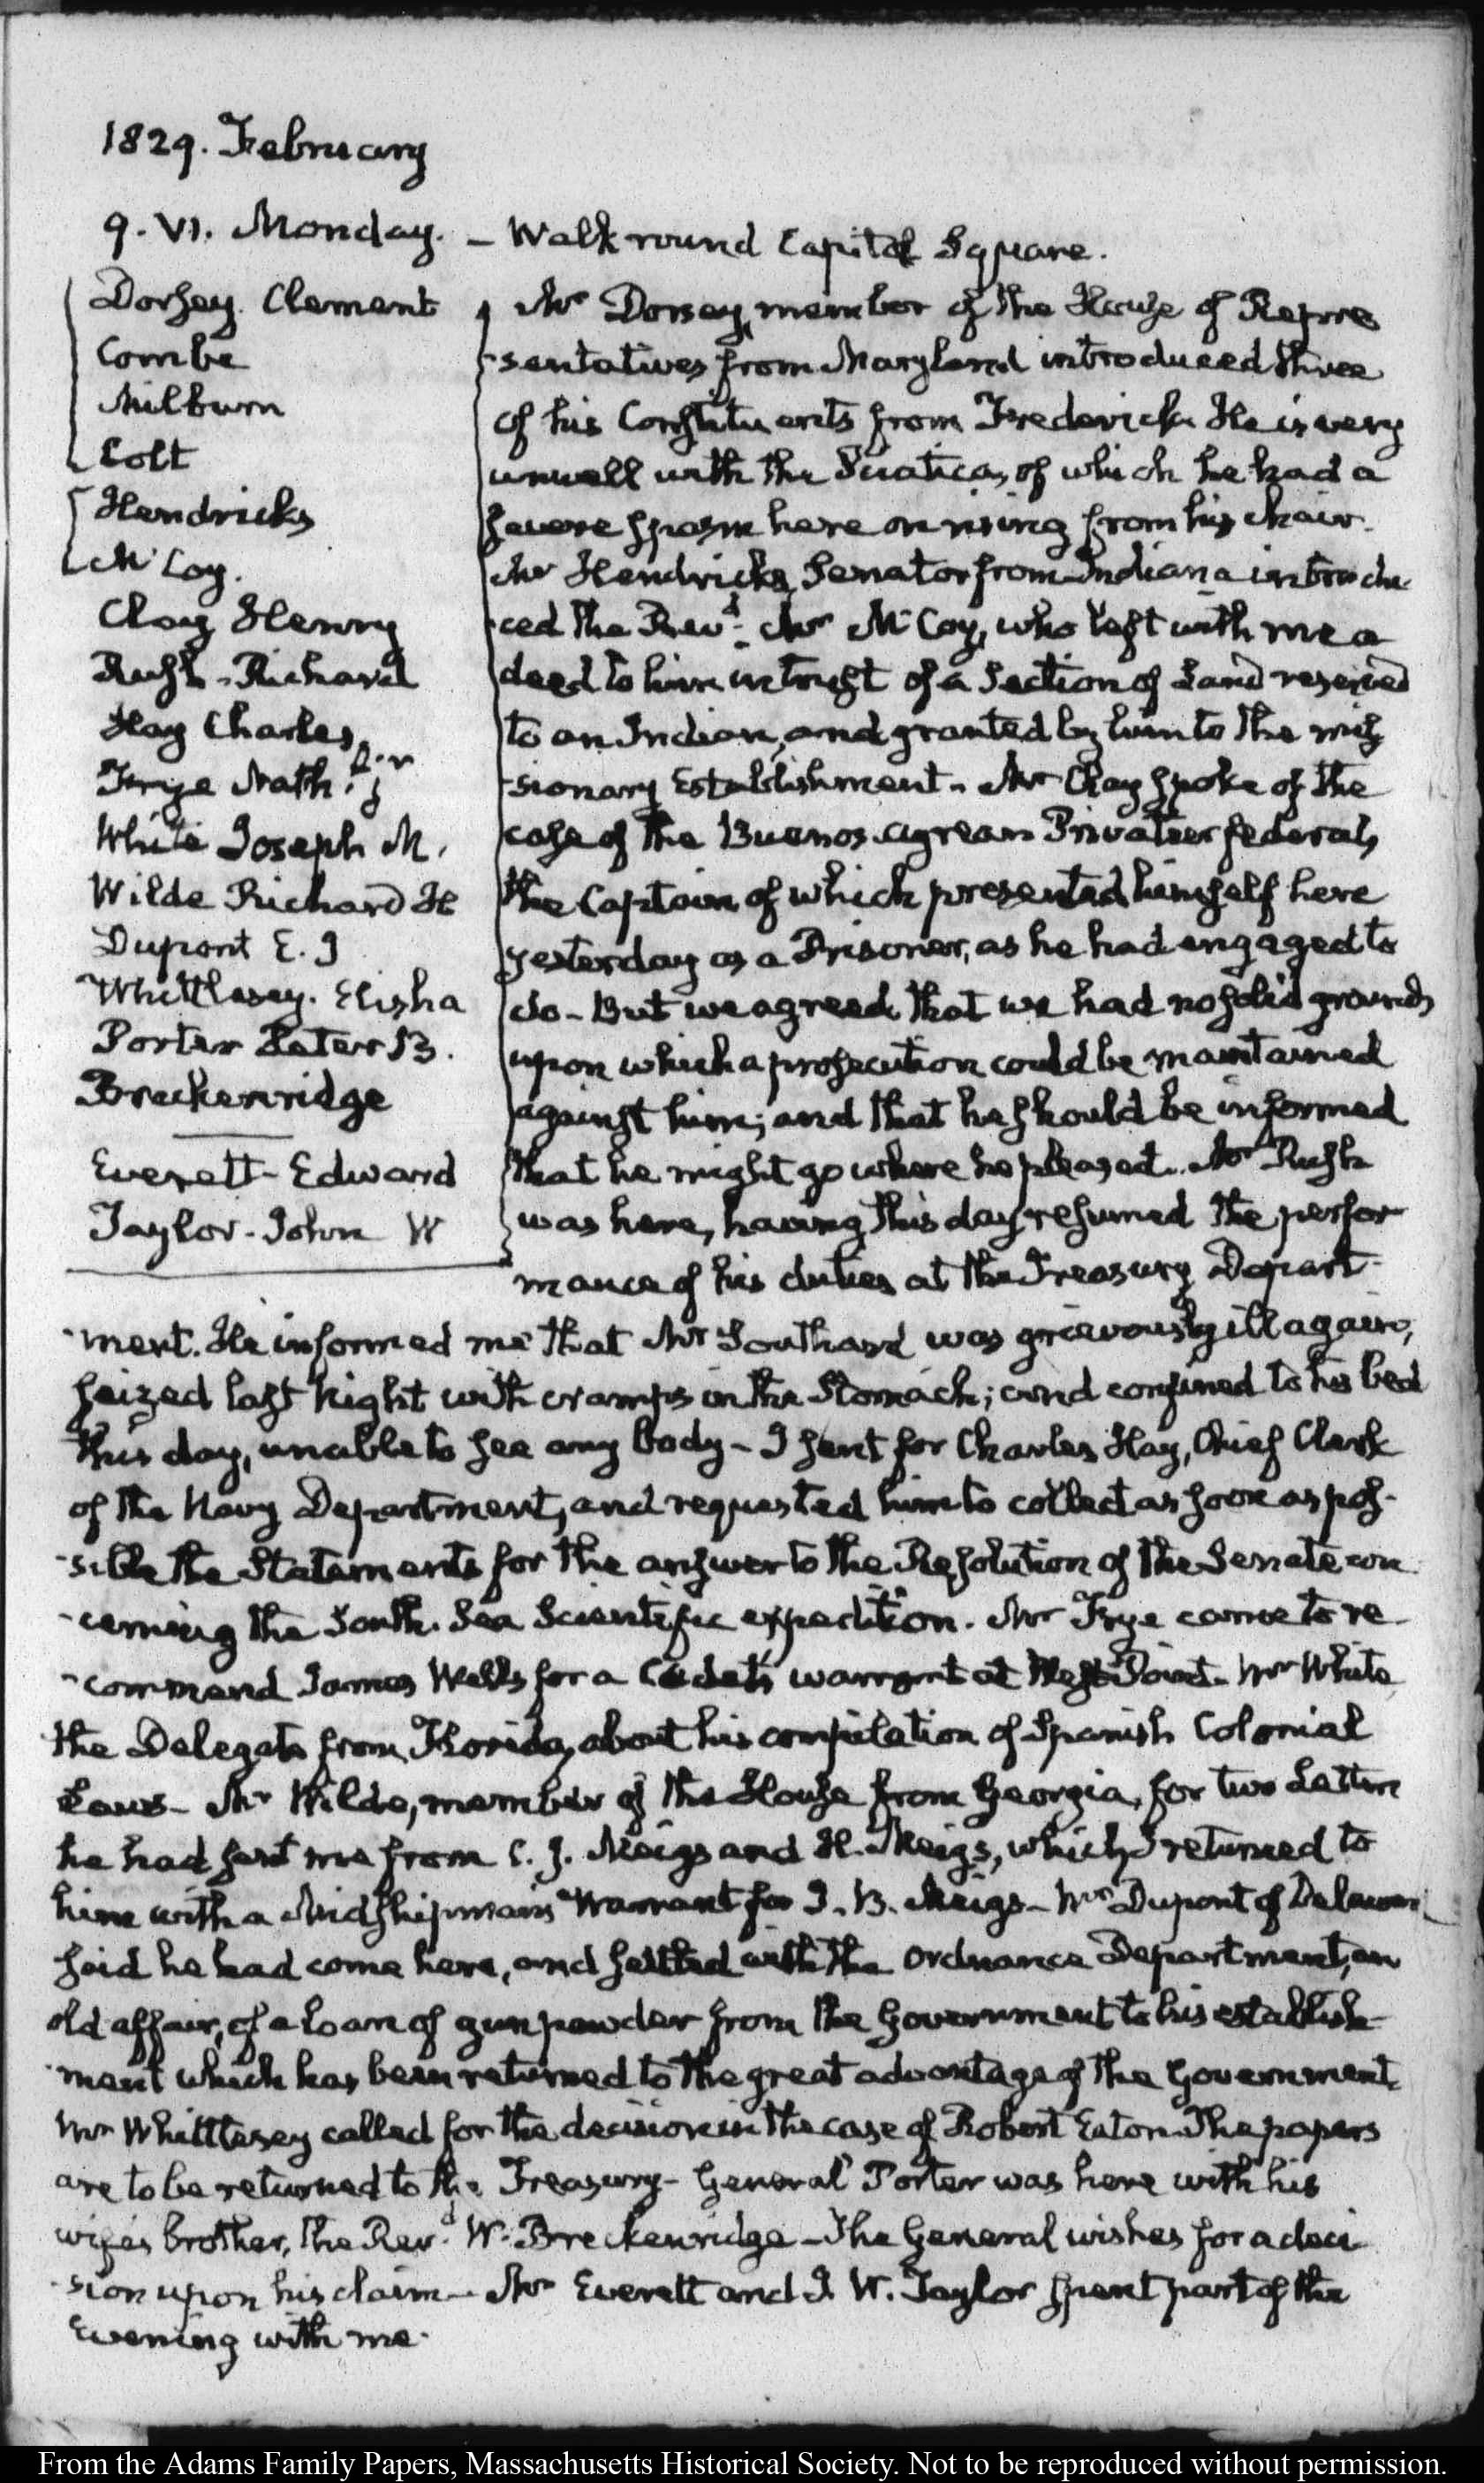 1829. February
9. VI. Monday. – Walk round Capitol Square.
Dorsey. Clement
Combe
Milburn
Colt
Hendricks
McCoy.
Clay Henry
Rush - Richard
Hay Charles
Frye Nath! jr
White Joseph M.
Wilde Richard H
Dupont E. I
Whittlesey. Elisha
Porter Peter B.
Breckenridge
Everett - Edward
Taylor - John W
Mr Dorsey, member of the House of Repre
-sentatives from Maryland introduced three
of his Constituents from Frederick. He is very
unwell with the Sciatica, of which he had a
severe spasm here on rising from his chair.
Mr Hendricks, Senator from Indiana introdu
-ced the Revd. Mr McCoy, who left with me a
deed to him in trust of a Section of Land reserved
to an Indian, and granted by him to the mis
-sionary Establishment. Mr Clay spoke of the
case of the Buenos Ayrean Privateer federal,
the Captain of which presented himself here
yesterday as a Prisoner, as he had engaged to
do – But we agreed that we had no solid grounds
upon which a prosecution could be maintained
against him; and that he should be informed
that he might go where he pleased. Mr Rush
was here, having this day resumed the perfor
mance of his duties at the Treasury Depart-
-ment. He informed me that Mr Southard was grievously ill again,
seized last Night with cramps in the Stomach; and confined to his bed
this day, unable to see any body – I sent for Charles Hay, Chief Clerk
of the Navy Department, and requested him to collect as soon as pos-
-sible the Statements for the answer to the Resolution of the Senate con
-cerning the South Sea Scientific expedition. Mr Frye came to re
-commend James Wells for a Cadet's warrant at West Point. Mr White
the Delegate from Florida, about his compilation of Spanish Colonial
Laws – Mr Wilde, member of the House from Georgia, for two Letters
he had sent me from C. J. Meigs and H. Meigs, which I returned to
him with a Midshipman's Warrant for J. B. Meigs – Mr Dupont of Delaware
said he had come here, and settled with the Ordnance Department, an
old affair, of a loan of gunpowder from the Government to his establish-
-ment which has been returned to the great advantage of the Government.
Mr Whittlesey called for the decision in the case of Robert Eaton. The papers
are to be returned to the Treasury – General Porter was here with his
wife's brother, the Revd. W. Breckenridge – The General wishes for a deci
-sion upon his claim – Mr Everett and J. W. Taylor spent part of the
Evening with me.
From the Adams Family Papers, Massachusetts Historical Society. Not to be reproduced without permission.